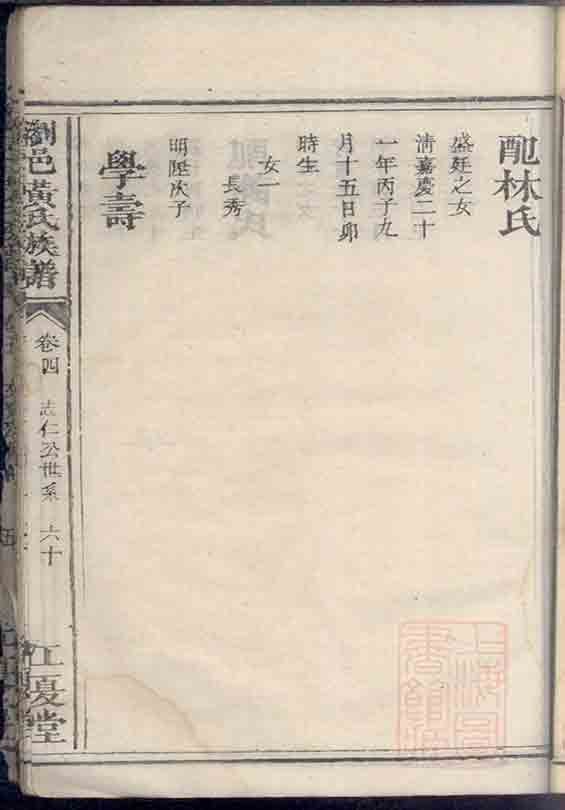 配林氏
盛廷之女
清嘉慶二十
一年丙子九
月十五日卯
時生
女一
長秀
明陞次子
學壽
瀏邑黃氏族譜
卷四
志仁公世系
六十
江夏堂
上海圖
書館藏